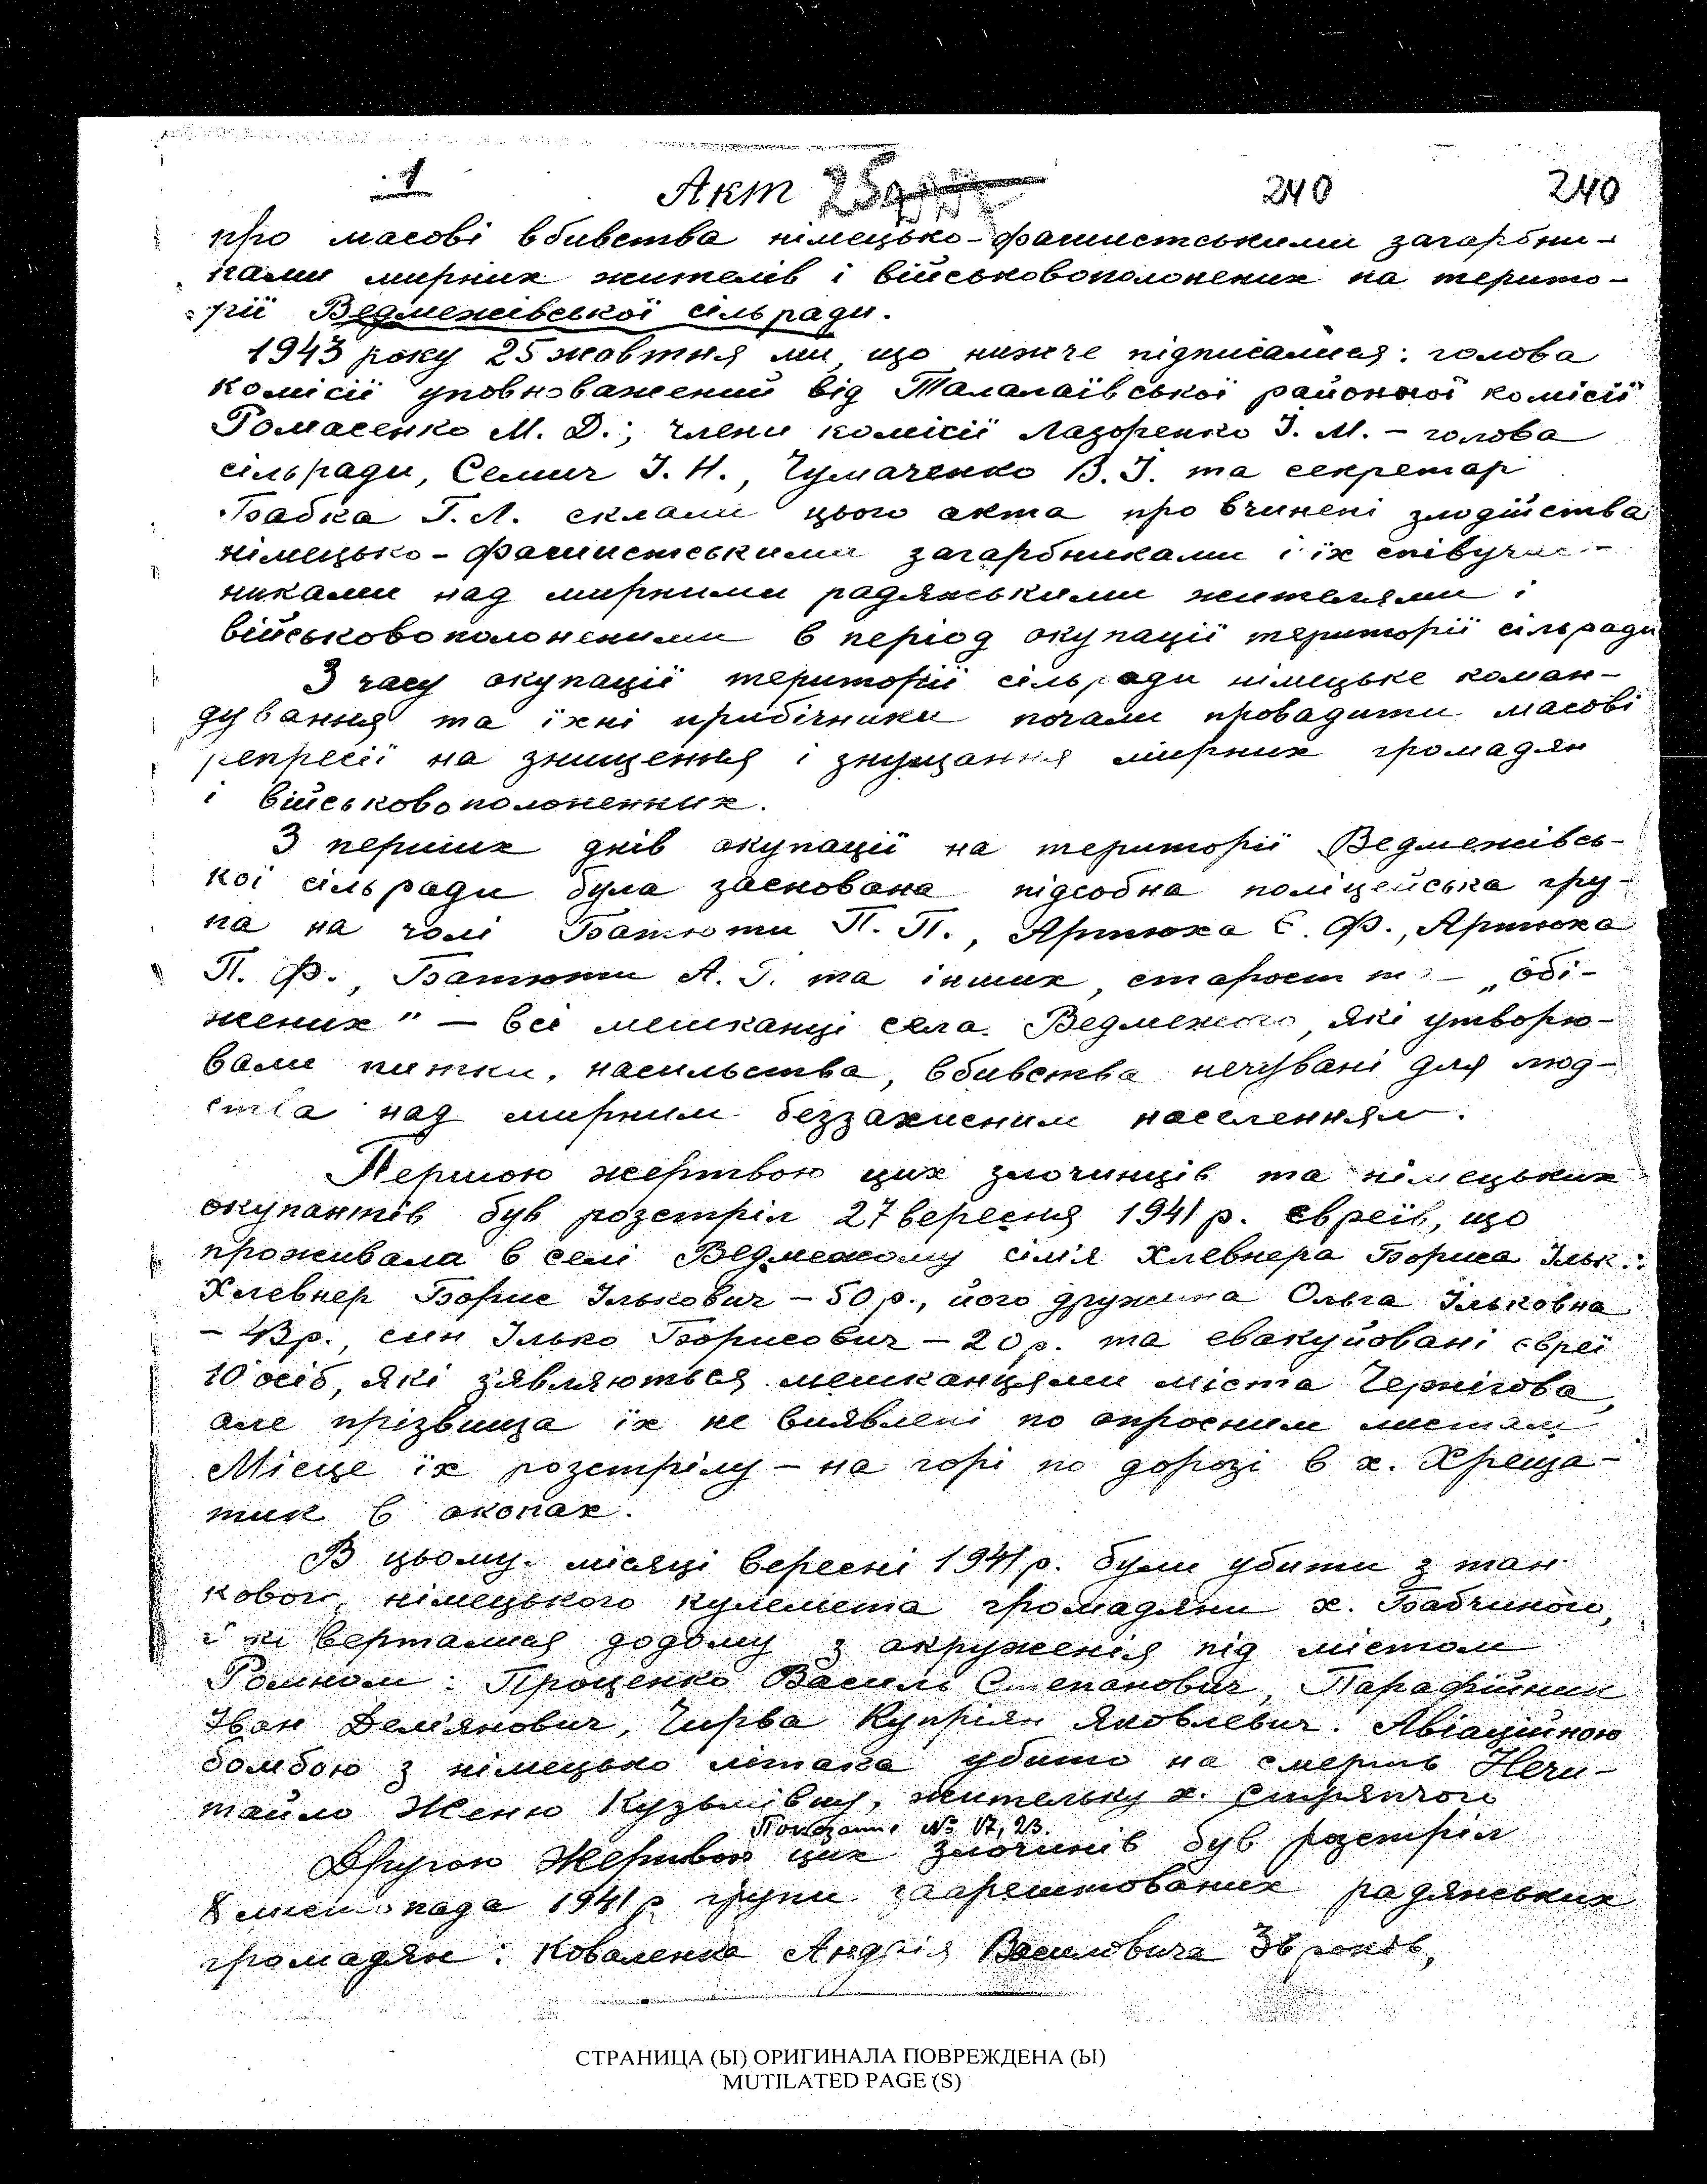 1 Акт 25 240 240
про масові вбивства німецько-фашистськими загарбни-
ками мирних жителів і військовополонених на терито-
рії Ведмежівської сільради.
1943 року 25 жовтня ми, що нижче підписалися: голова
комісії уповноважений від Талалаївської районної комісії
Ромасенко М. Д.; члени комісії Лазоренко І. М. – голова
сільради, Семич І. Н., Чумаченко В. І. та секретар
Бабка Г. Л. склали цього акта про вчинені злодійства
німецько-фашистськими загарбниками і їх співучас-
никами над мирними радянськими жителями і
військовополоненими в період окупації території сільради
З часу окупації території сільради німецьке коман-
дування та їхні прибічники почали провадити масові
репресії на знищення і знущання мирних громадян
і військовополоненних.
З перших днів окупації на території Ведмежівсь-
кої сільради була заснована підсобна поліцейська гру-
па на чолі Батюти П. П., Артюха Є. Ф., Артюха
П. Ф., Батюти А. Г. та інших, старост – „обі-
жених" – всі мешканці села Ведмежого, які утворю-
вали питки, насильства, вбивства нечувані для люд-
ства над мирним беззахисним населенням.
Першою жертвою цих злочинців та німецьких
окупантів був розстріл 27 вересня 1941 р. євреїв, що
проживала в селі Ведмежому сім'я Хлевнера Бориса Ільк.:
Хлевнер Борис Ількович – 50 р., його дружина Ольга Ільковна
– 43 р., син Ілько Борисович – 20 р. та евакуйовані євреї
10 осіб, які з'являються мешканцями міста Чернігова,
але прізвища їх не виявлені по опросним листам
Місце їх розстрілу – на горі по дорозі в х. Хреща-
тик в окопах.
В цьому місяці вересні 1941 р. були убити з тан
кового німецького кулемета громадяни х. Бабчиного,
які вертались додому з окруженія під містом
Ромном: Проценко Василь Степанович, Парафійник
Іван Дем'янович, Чирва Купріян Яковлевич. Авіаційною
бомбою з німецько літака убито на смерть Нечи-
тайло Женю Кузьмівну, жительку х. Стряпчого
Показання № 17, 23.
Другою жертвою цих злочинів був розстріл
8 листопада 1941 р групи заарештованих радянських
громадян: Коваленка Андрія Васильовича 36 років,
СТРАНИЦА (Ы) ОРИГИНАЛА ПОВРЕЖДЕНА (Ы)
MUTILATED PAGE (S)